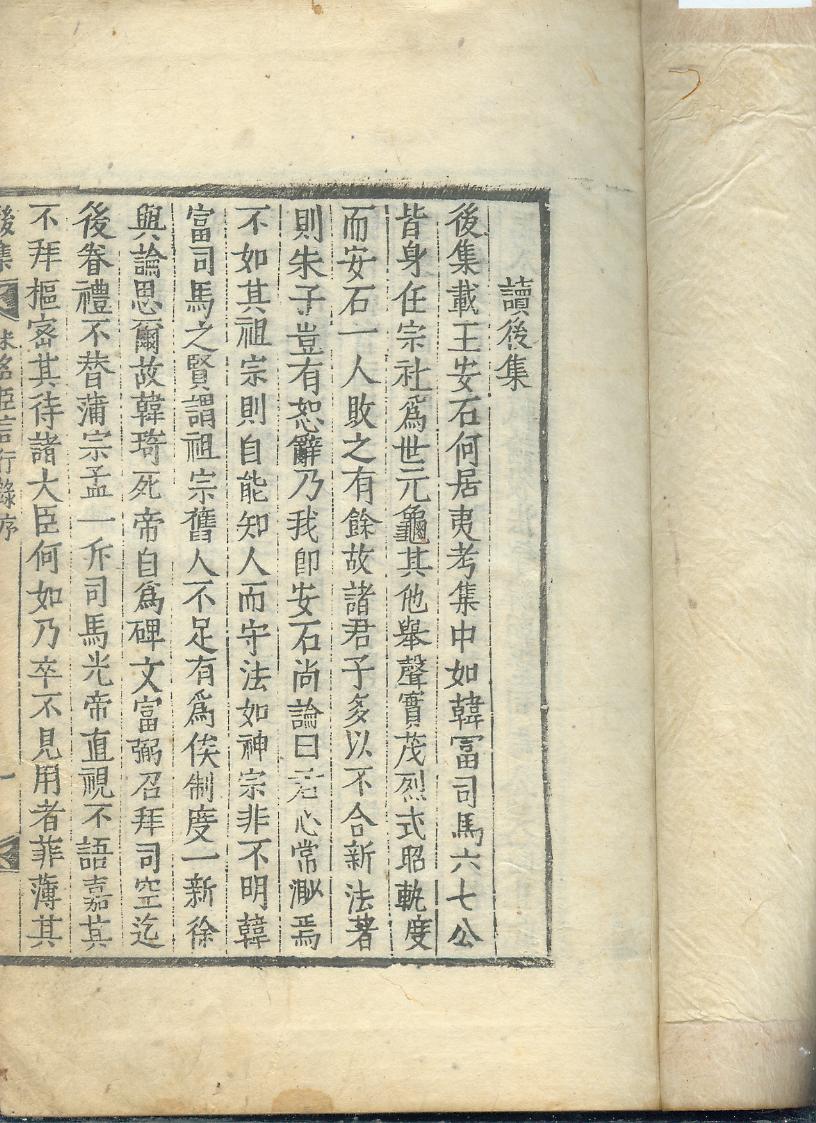 讀後集
後集載王安石何居夷考集中如韓富司馬六七公
皆身任宗社爲世元龜其他舉聲實茂烈式昭軌度
而安石一人敗之有餘故諸君子多以不合新法著
則朱子豈有恕辭乃我卽安石尚論曰君心常渺焉
不如其祖宗則自能知人而守法如神宗非不明韓
富司馬之賢謂祖宗舊人不足有爲俟制度一新徐
與論思爾故韓琦死帝自爲碑文富弼召拜司空迄
後眷禮不替蒲宗孟一斥司馬光帝直視不語嘉其
不拜樞密其待諸大臣何如乃卒不見用者菲薄其
後集 宋名臣言行錄序 一